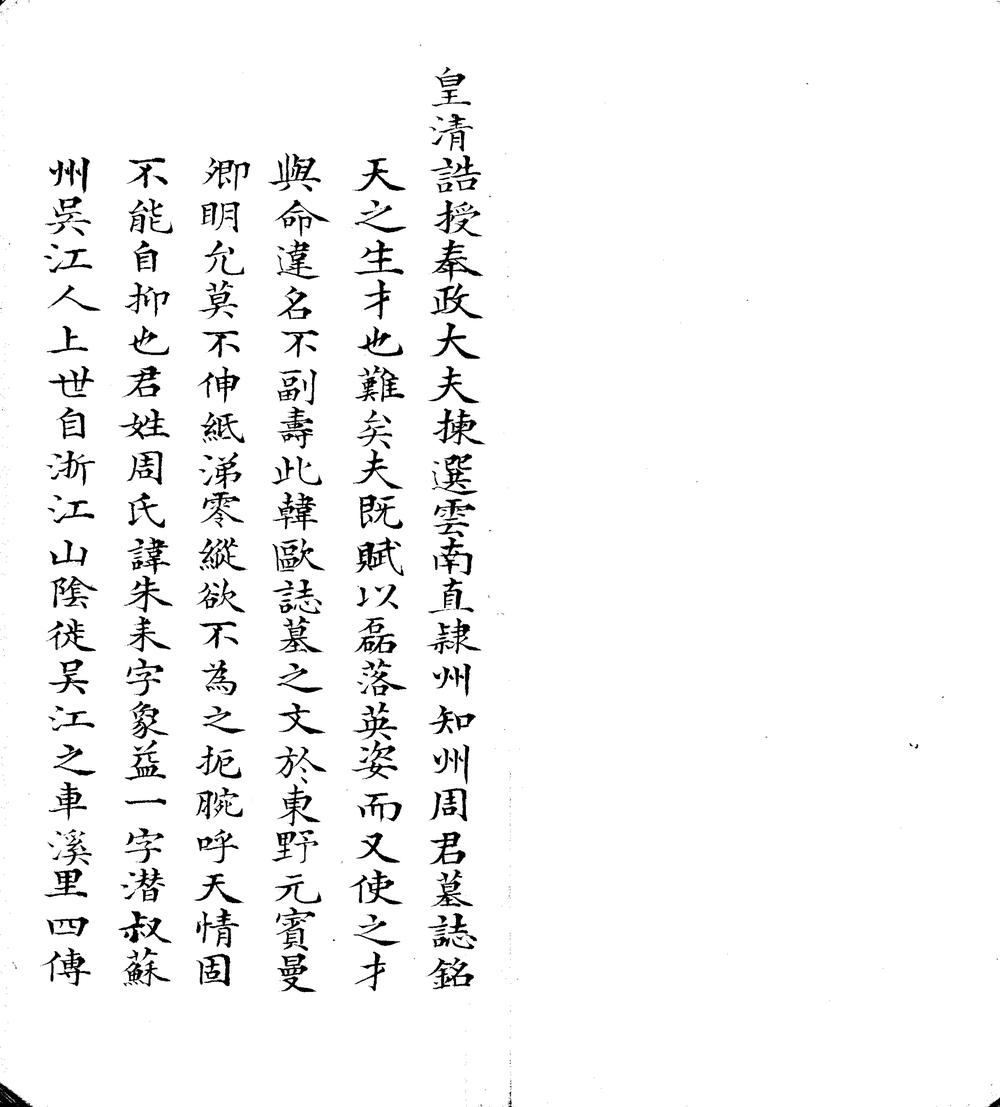 皇清誥授奉政大夫揀選雲南直隸州知州周君墓誌銘
天之生才也難矣夫既賦以磊落英姿而又使之才
與命違名不副壽此韓歐誌墓之文於東野元賓曼
卿明允莫不伸紙涕零縱欲不為之扼腕呼天情固
不能自抑也君姓周氏諱朱耒字象益一字潛叔蘇
州吳江人上世自浙江山陰徙吳江之車溪里四傳